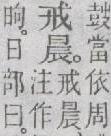 當依周
戒晨。
戒晨
注作
日部曰。